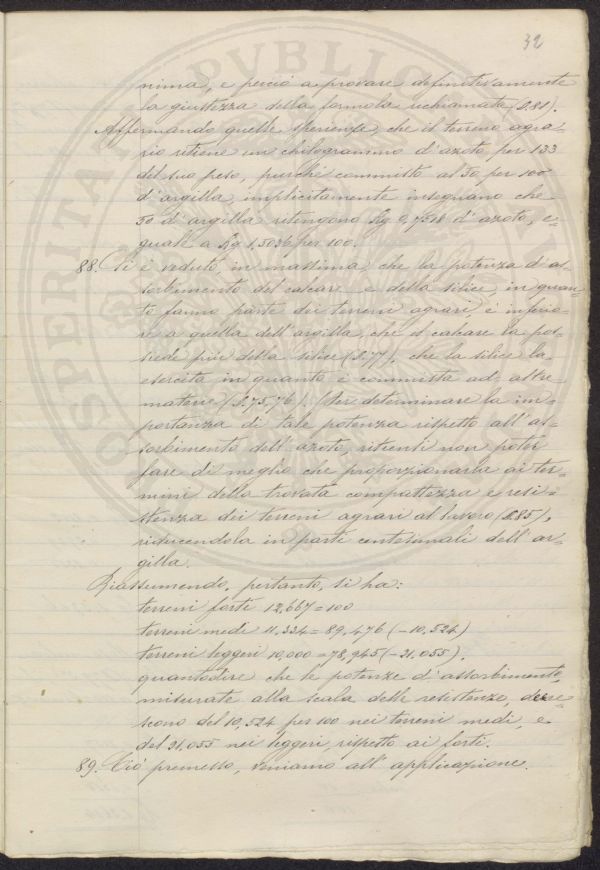 32
nima, e perciò a provare definitivamente
la giustezza della formola richiamata (§.81).
Affermando quelle sperienze, che il terreno agra=
rio ritiene un chilogrammo d'azoto, per 133
del suo peso, purché commisto al 50 per 100
d'argilla, implicitamente insegnano che
50 d'argilla ritengono Kg 0,7518 d'azoto, e=
guale a Kg 1,5036 per 100.
88. Si è veduto, in massima, che la potenza d'as=
sorbimento del calcare e della silice, in quan=
to fanno parte dei terreni agrari, è inferio=
re a quella dell'argilla, che il calcare la pos=
siede più della silice (§.77), che la silice la
esercita in quanto è commista ad altre
materie (§.75,76). Per determinare la im=
portanza di tale potenza rispetto all'as=
sorbimento dell'azoto, ritienti non poter
fare di meglio che proporzionarla ai ter=
mini della trovata compattezza e resi=
stenza dei terreni agrari al lavoro (§.85),
riducendola in parti centesimali dell'ar=
gilla.
Riassumendo, pertanto, si ha:
terreni forti 12,667=100
terreni medi 11,334=89,476 (-10,524)
terreni leggeri 10,000=78,945 (-21,055).
quantodire che le potenze d'assorbimento,
misurate alla scala delle resistenze, decre
scono del 10,524 per 100 nei terreni medi, e
del 21,055 nei leggeri, rispetto ai forti.
89. Ciò premesso, veniamo all'applicazione.